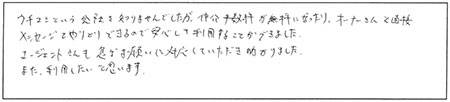 ウチコミという会社を知りませんでしたが、仲介手数料が無料になったり、オーナーさんと直接
メッセージでやりとりできるので安心して利用することができました。
エージェントさんも急なお願いに対応していただき助かりました。
また、利用したいと思います。